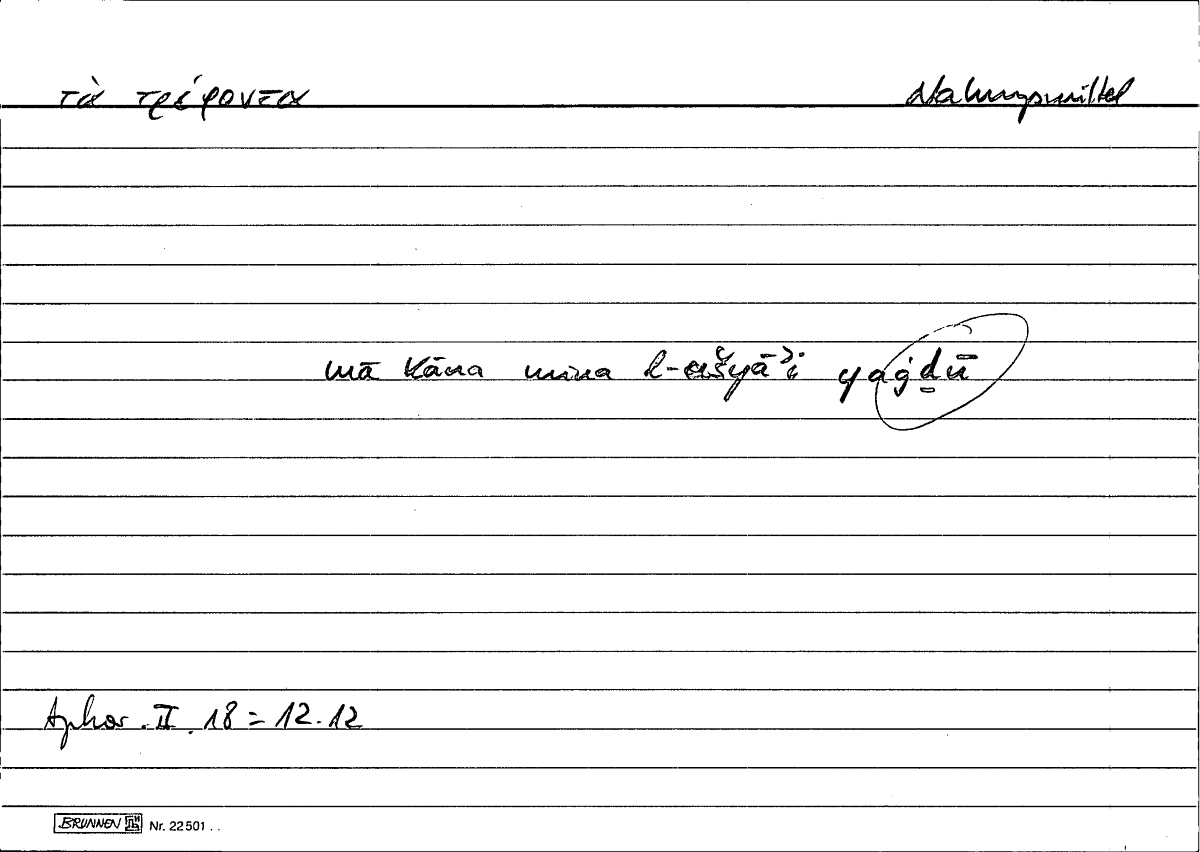 τὰ τρέφοντα Nahrungsmittel
mā kāna mina l-ašyāʾi yaġḏū
Aphor. II. 18 = 12.12
BRUNNEN Nr. 22 501 . .